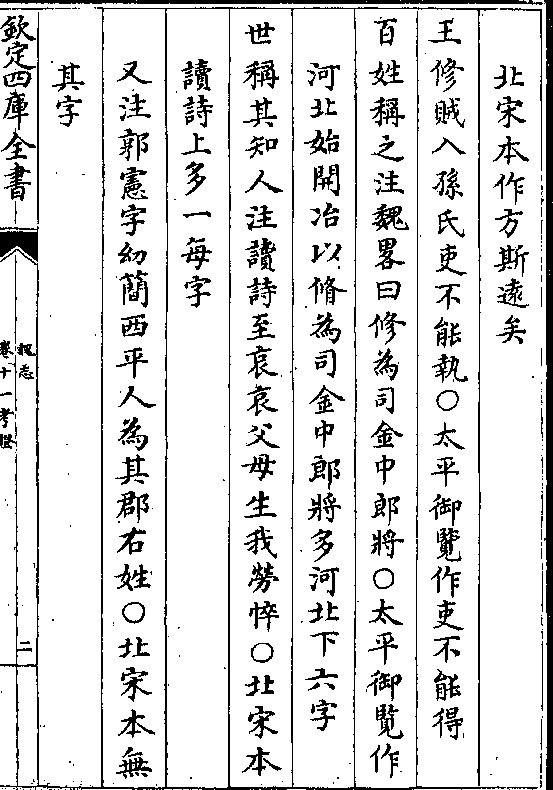 北宋本作方斯遠矣
王修賊入孫氏吏不能執○太平御覽作吏不能得
百姓稱之注魏畧曰修為司金中郎將○太平御覽作
河北始開冶以脩為司金中郎將多河北下六字
世稱其知人注讀詩至哀哀父母生我勞悴○北宋本
讀詩上多一每字
又注郭憲字幼簡西平人為其郡右姓○北宋本無
其字
欽定四庫全書
魏志
卷十一考證
二